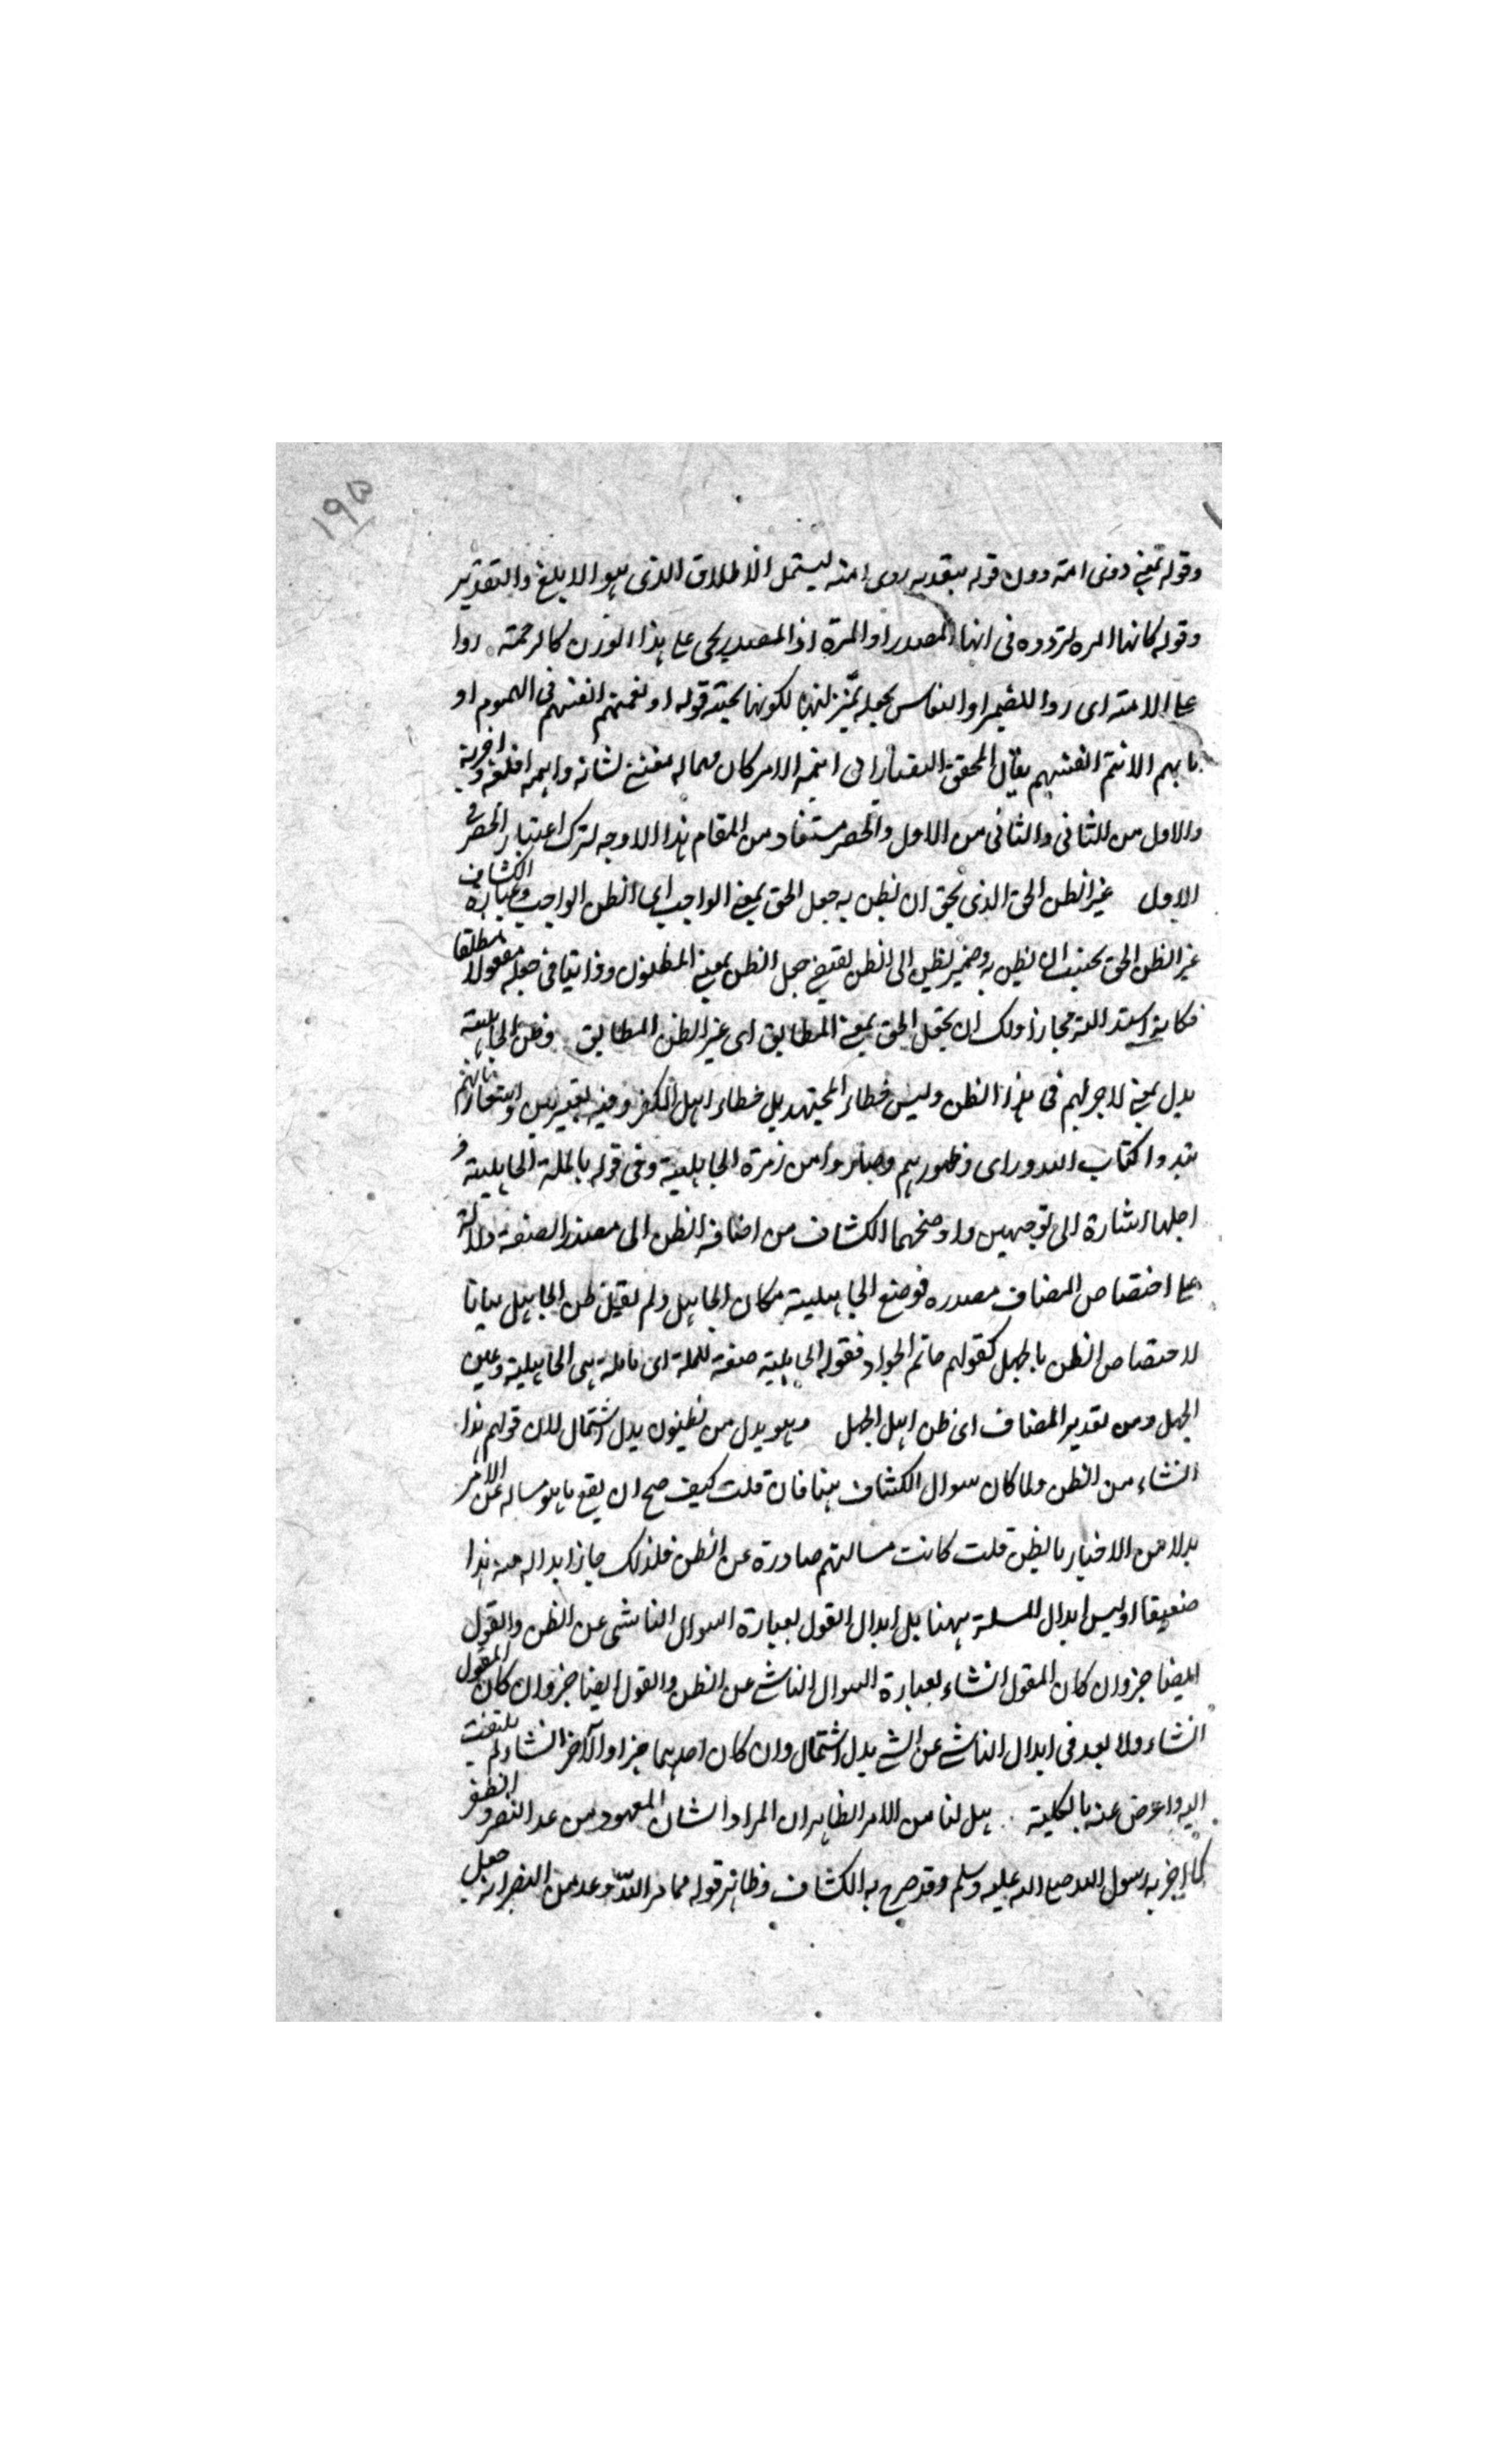 ١٩٥
وقوله بمعنى ذوى امنة دون قوله بتقدير ذوى امنة ليشتمل الاطلاق الذى هو الابلغ والتقدير
وقوله كانها المرة لتردده فى انها المصدر او المرة اذ المصدر يجئ على هذا الوزن كالرحمة ردا
على الامنة اى ردا للضمير او النعاس بجعله لكونها قوله او نعمتهم انفسهم فى الهموم او
ما بهم الا هم انفسهم يقال المحقق التفتازانى اهمه الامر كان مهما له معتنى لشانه واهمه اقلقه واحزنه
والاول من الثانى والثانى من الاول والحصر مستفاد من المقام هذا الاوجه لترك اعتبار الحصر فى
الاول غير الظن الحق الذى يحق ان يظن به جعل الحق بمعنى الواجب اى الظن الواجب وعبارة الكشاف
غير الظن الحق الذى يجب ان يظن به وضمير يظن الى الظن يقتضى جعل الظن بمعنى المظنون وذا ينافى جعله مفعولا مطلقا
فكانه اسند اليه مجازا ولك ان تجعل الحق بمعنى المطابق اى غير الظن المطابق وظن الجاهلية
بدل بمعنى لا اجر لهم فى هذا الظن وليس خطاء المجتهد بل خطاء اهل الكفر وفيه
نبذوا كتاب الله وراى ظهورهم وصاروا من زمرة الجاهلية وفى قوله بالملة الجاهلية و
اهلها اشارة الى توجيهين واوضحهما الكشاف من اضافة الظن الى مصدر الصفة دلالة
على اختصاص المضاف مصدره فوضع الجاهلية مكان الجاهل ولم يقل ظن الجاهل بيانا
لاختصاص الظن بالجهل كقولهم حاتم الجواد فقوله الجاهلية صفة للملة اى ملة هى الجاهلية وعين
الجهل ومن تقدير المضاف اى ظن اهل الجهل وهو بدل من يظنون بدل اشتمال لان قولهم هذا
انشاء من الظن ولما كان سوال الكشاف هنا فان قلت كيف صح ان يقع ما هو مسالة عن الامر
بدلا من الاخبار بالظن قلت كانت مسالتهم صادرة عن الظن فلذلك جاز ابداله منه هذا
ضعيفا اذ ليس ابدال للمسئلة ههنا بل ابدال القول بعبارة السوال الناشى عن الظن والقول
ايضا خبر وان كان المقول انشاء بعبارة السوال الناشى عن الظن والقول ايضا خبر وان كان المقول
انشاء ولا بعد فى ابدال الناشى عن الشى بدل اشتمال وان كان احدهما خبرا والآخر انشاء ولم يلتفت
اليه واعرض عنه بالكلية هل لنا من الامر الظاهر ان المراد الشان المعهود من عد النصر والظفر
كما اخبر به رسول الله صلى الله عليه وسلم وقد صرح به الكشاف وظاهر قوله مما امر الله ووعد من النصر انه جعل